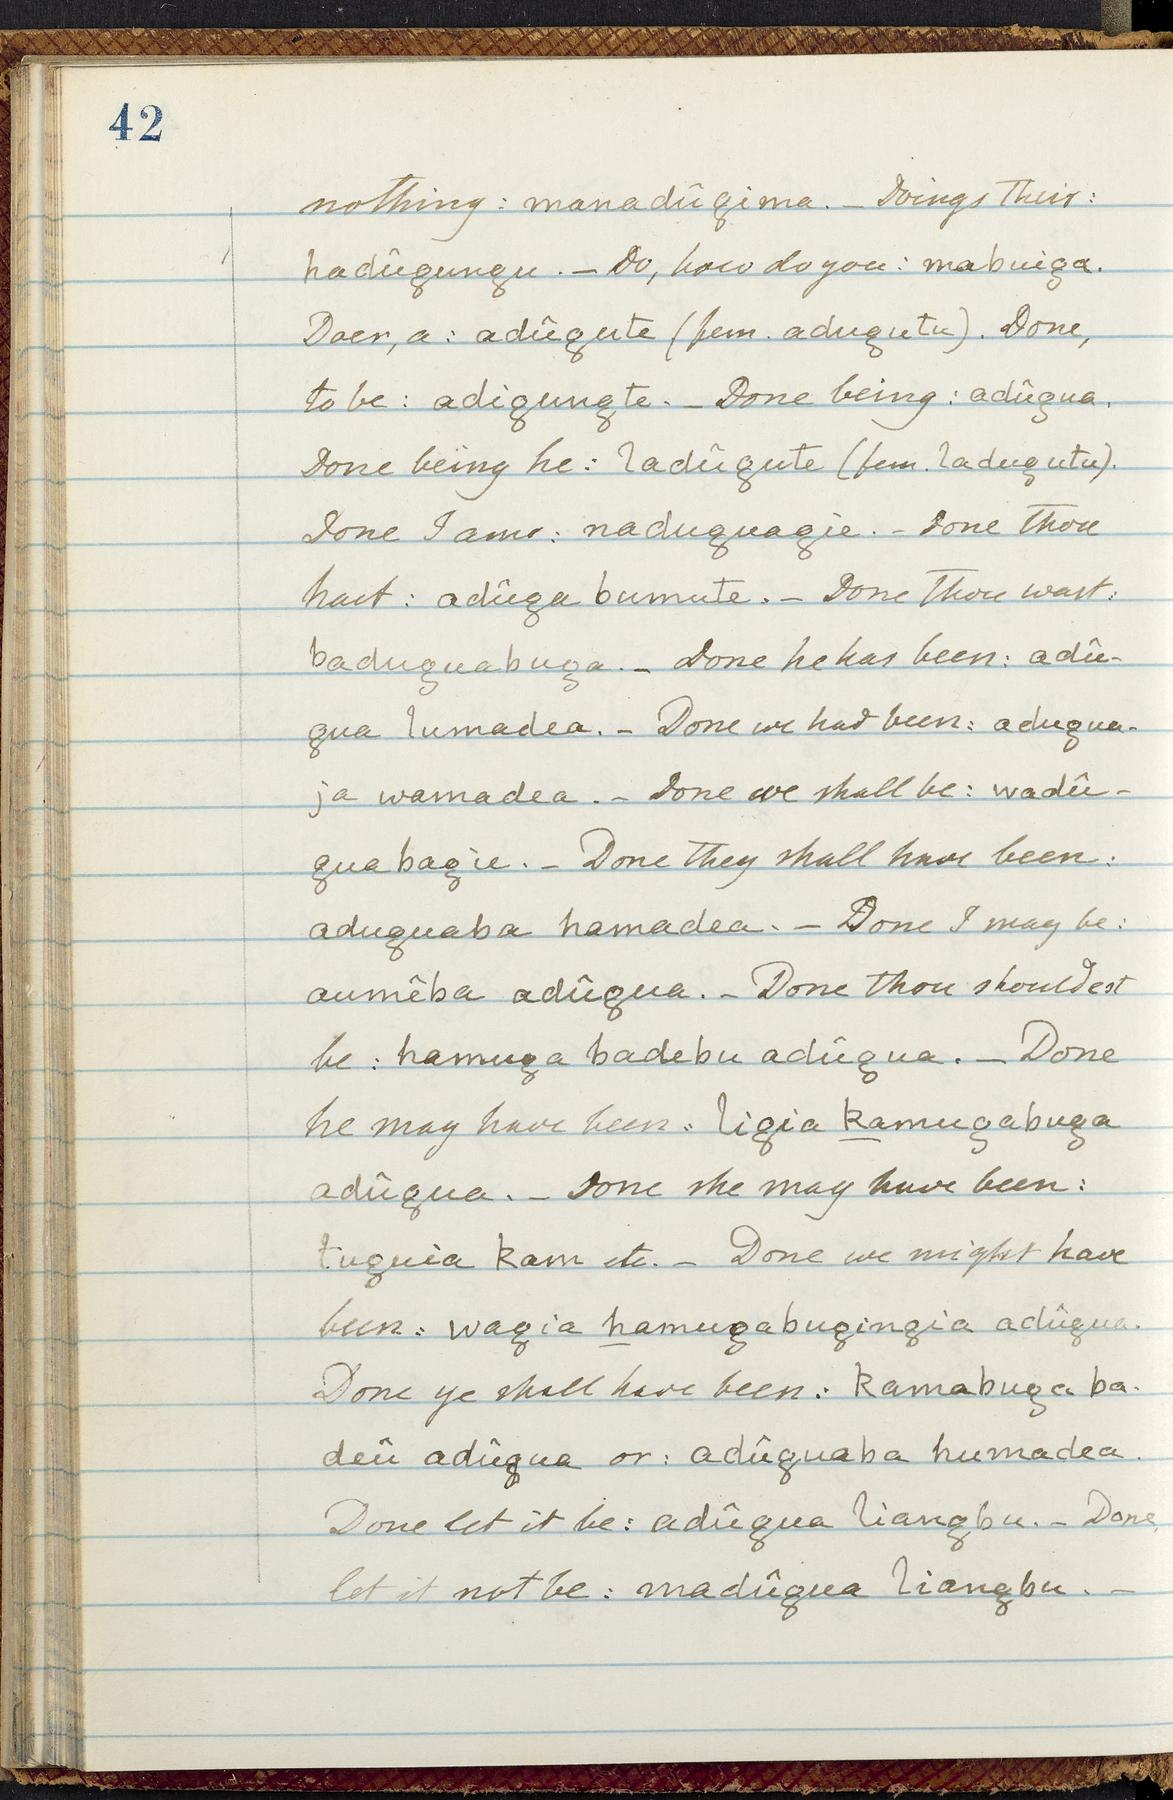 42
nothing: manadûgima. – Doings their:
hadûgungu. – Do, how do you: mabuiga.
Doer, a: adûgute (fem. adugutu). Done,
to be: adigungte. – Done being: adûgua.
Done being he: ladûgute (fem. ladugutu).
Done I am: naduguagie. – Done thou
hast: adûga bumute. – Done thou wast:
baduguabuga. – Done he has been: adû-
gua lumadea. – Done we had been: adugua-
ja wamadea. – Done we shall be: wadû-
guabagie. – Done they shall have been:
aduguaba hamadea. – Done I may be:
aumêba adûgua. – Done thou shouldest
be: hamuga badebu adûgua. – Done
he may have been: ligia kamugabuga
adûgua. – Done she may have been:
tuguia kam etc. – Done we might have
been: wagia hamugabugingia adûgua.
Done ye shall have been: kamabuga ba-
deû adûgua or: adûguaba humadea.
Done let it be: adûgua liangbu. – Done,
let it not be: madûgua liangbu. –